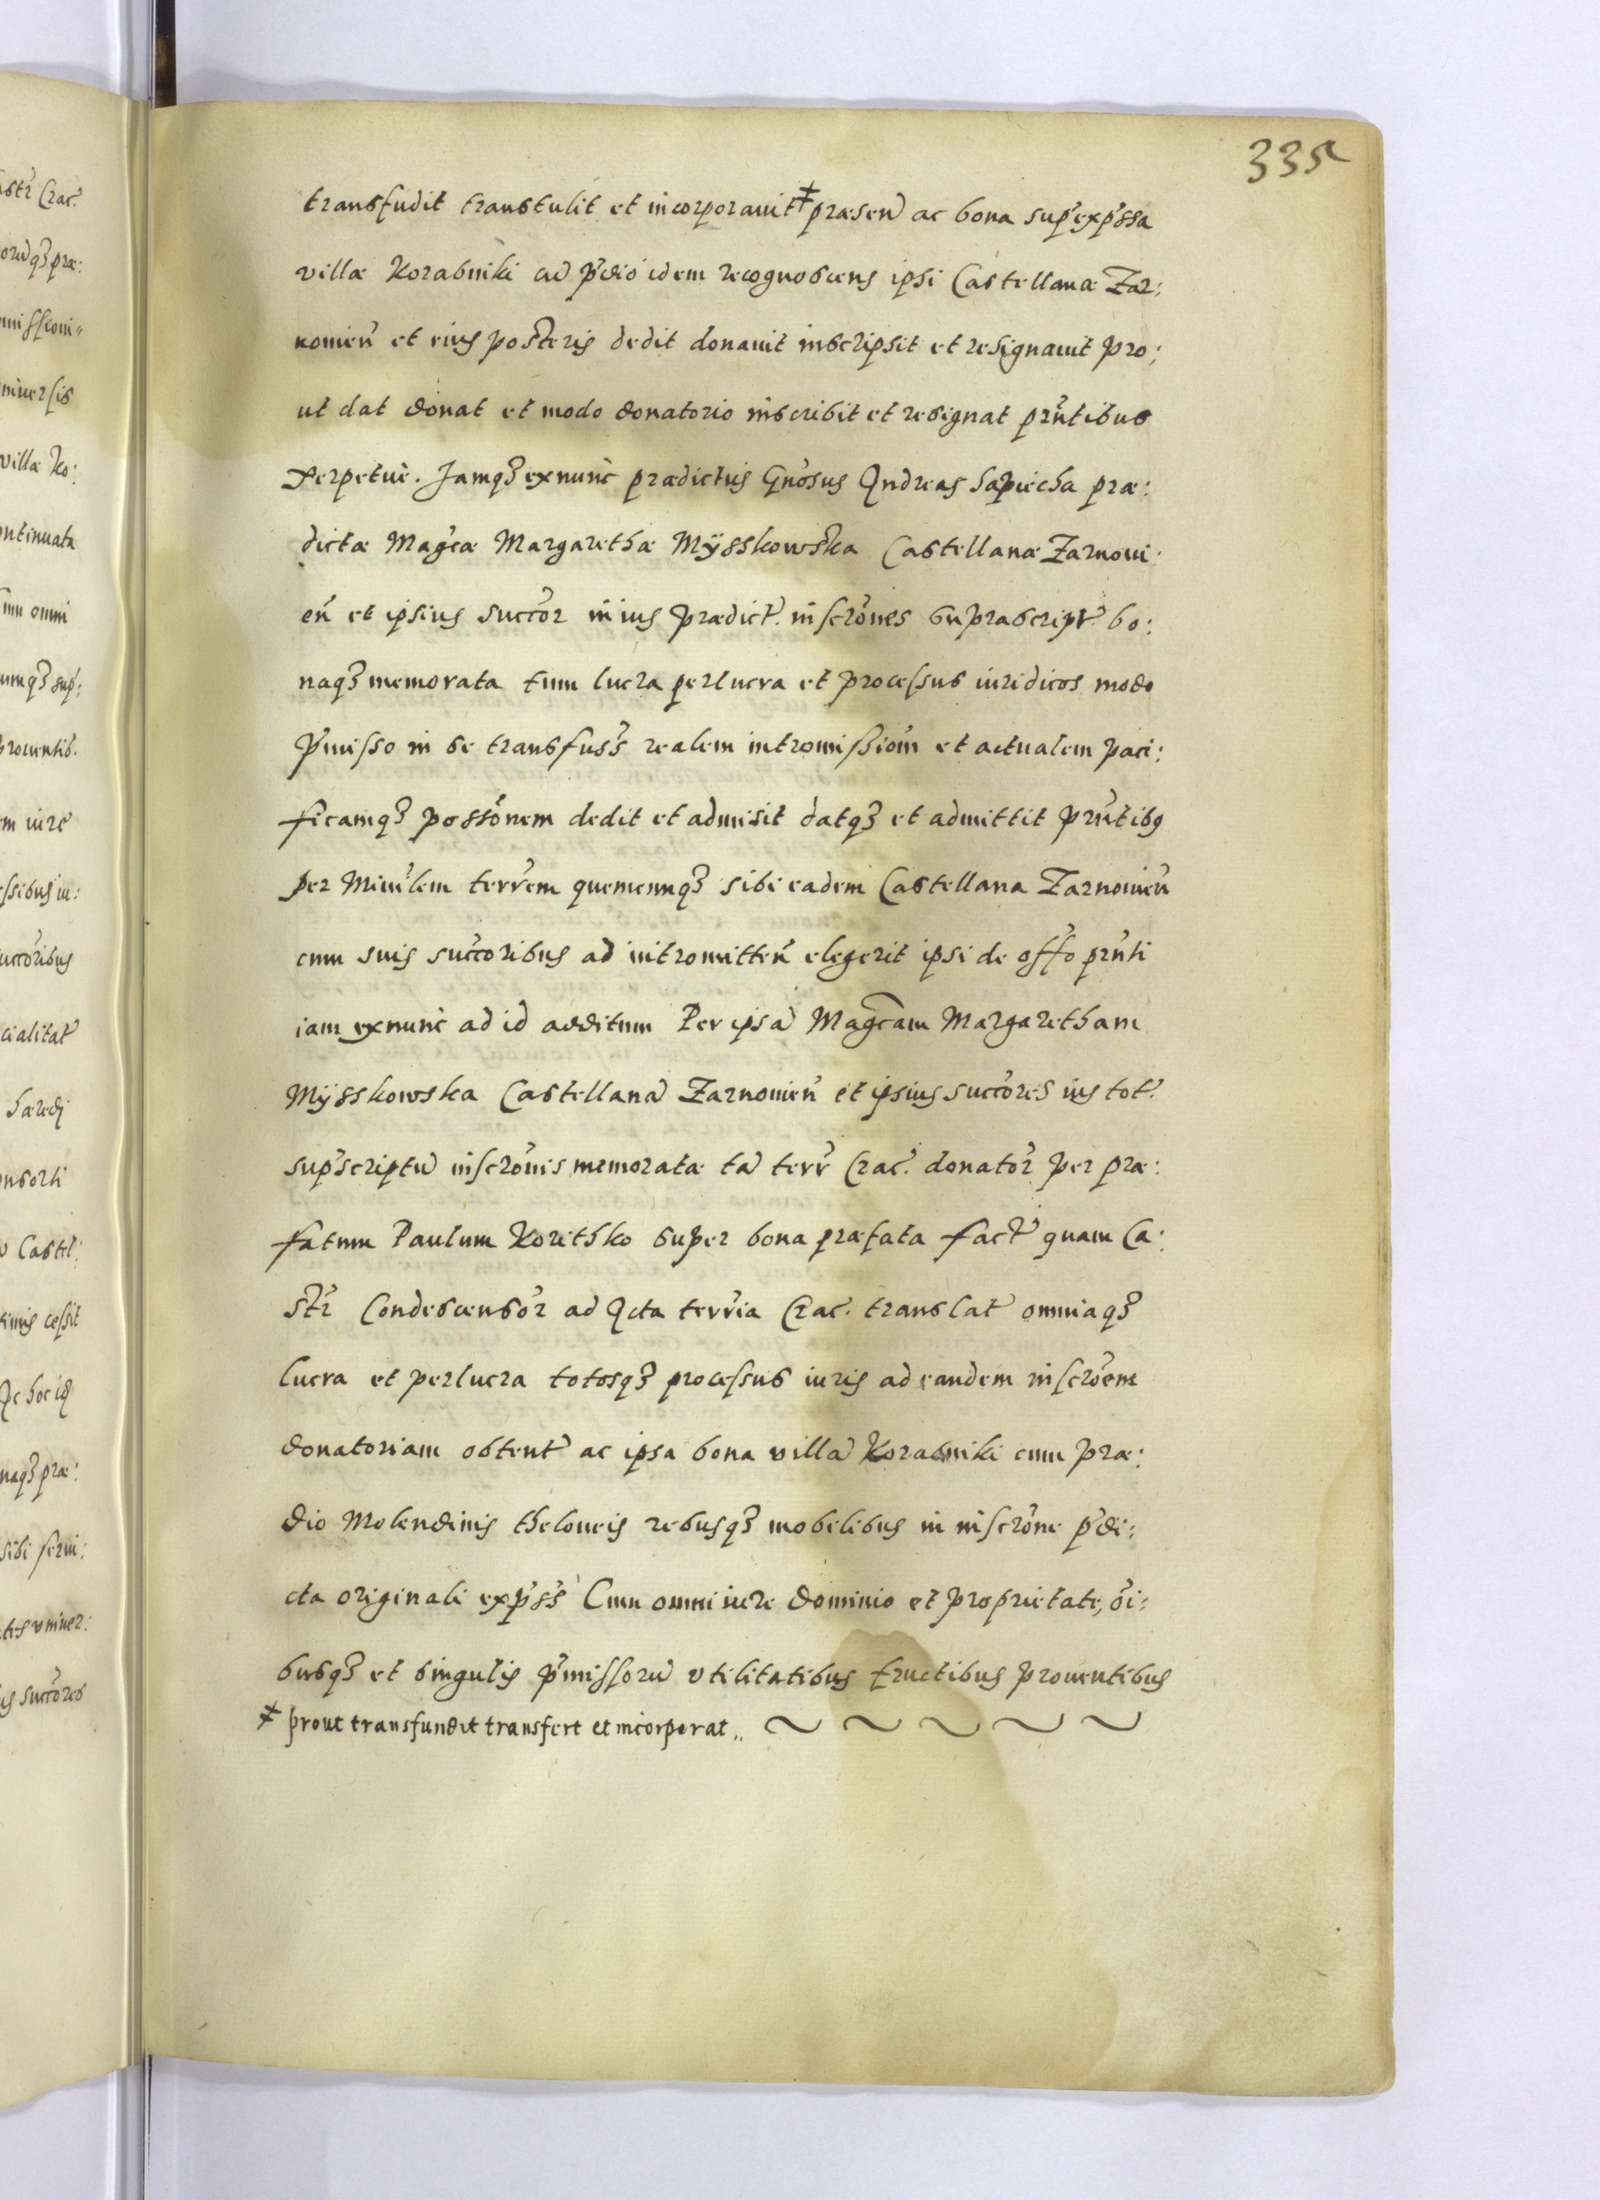 335
transfudit transtulit et incorporauit ≠ præsen͠ ac bona sup͛exp͛ssa
villæ Korabniki cu͠ p͛dio idem recognoscens ipsi Castellanæ Zar:
nouien͛ et eius posteris dedit donauit inscripsit et resignauit pro:
ut dat donat et modo donatorio inscribit et resignat pr͛ntibus
Perpetue. Jamqꝫ exnunc prædictus Gn͛osus Andreas Sapiecha præ:
dictæ Mag͛cæ Margarethæ Mÿsskowska Castellanæ Zarnoui:
en͛ et ipsius succ͛or in ius prædict͛ inscr͛ones suprascript͛ bo:
naqꝫ memorata tum lucra perlucra et processus iuridicos modo
p͛misso in se transfuss͛ realem intromission͛ et actualem paci:
ficamqꝫ poss͛onem dedit et admisit datqꝫ et admittit pr͛ntibꝯ
per Min͛lem terr͛em quemcunqꝫ sibi eadem Castellana Zarnouien͛
cum suis succ͛oribus ad intromitten͛ elegerit ipsi de off͛o pr͛nti
iam exnunc ad id additum Per ipsa͠ Mag͛cam Margaretham
Mÿsskowska Castellana͠ Zarnouien͛ et ipsius succ͛ores ius tot͛
sup͛scriptu͠ inscr͛onis memoratæ ta͠ terr͛ Crac͛. donator͛ per præ:
fatum Paulum Korithko super bona præfata fact͛ quam Ca:
str͛ Condescensor͛ ad Acta terr͛ia Crac. translat͛ omniaqꝫ
lucra et perlucra totosqꝫ processus iuris ad eandem inscr͛oem
donatoriam obtent͛ ac ipsa bona villa͠ Korabniki cum præ:
dio Molendinis theloneis rebusqꝫ mobilibus in inscr͛one p͛di:
cta originali exp͛ss͛ Cum omni iure Dominio et proprietate, o͛i:
busqꝫ et singulis p͛missoru͠ vtilitatibus fructibus prouentibus
≠ prout transfundit transfert et incorporat ,, ~ ~ ~ ~ ~